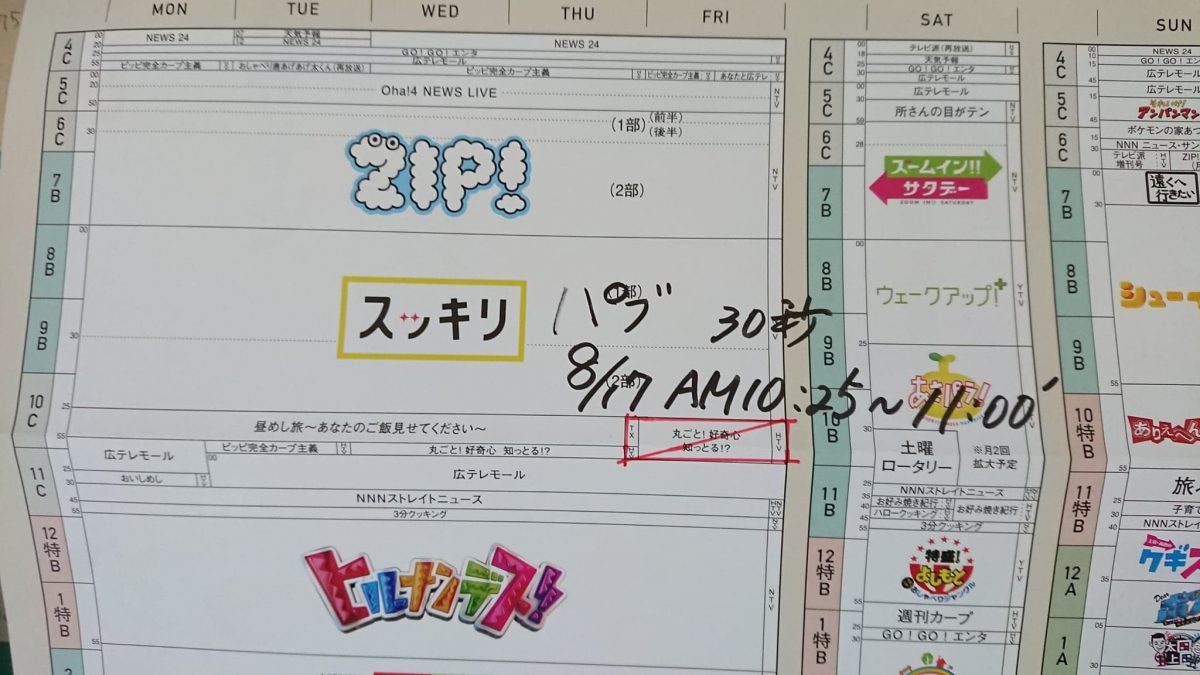 MON TUE WED THU FRI SAT SUN
4C
NEWS 24
天気予報
NEWS 24
NEWS 24
GO!GO!エンタ
広テレモール
ピッピ完全カープ主義
おしゃべり唐あげあげ太くん(再放送)
ピッピ完全カープ主義
ピッピ完全カープ主義
あなたと広テレ
5C
Oha!4 NEWS LIVE
NTV
6C
(1部)(前半)
(後半)
7B
ZIP!
(2部)
NTV
8B
9B
スッキリ
(1部)
(2部)
パブ 30秒
8/17 AM10:25~11:00
10C
昼めし旅~あなたのご飯見せてください~
TX
丸ごと!好奇心
知っとる!?
HTV
広テレモール
ピッピ完全カープ主義
HTV
丸ごと!好奇心 知っとる!?
HTV
11C
おいしめし
広テレモール
NNNストレイトニュース
3分クッキング
12特B
ヒルナンデス!
NTV
1特B
4C
テレビ派(再放送)
天気予報
GO!GO!エンタ
広テレモール
5C
広テレモール
所さんの目がテン
NTV
6C
7B
ズームイン!!
サタデー
ZOOM IN!! SATURDAY
NTV
8B
ウェークアップ!
YTV
9B
あさパラ!
10B
土曜
ロータリー
※月2回
拡大予定
11B
NNNストレイトニュース
お好み焼き紀行
ハロークッキング
お好み焼き紀行
3分クッキング
12特B
特盛!
よしもと
YTV
週刊カープ
HTV
1特B
GO!GO!エンタ
4C
NEWS 24
GO!GO!エンタ
広テレモール
5C
広テレモール
それいけ!
アンパンマン
6C
ポケモンの家あつ
NNN ニュース・サン
テレビ派
増刊号
HTV
ZIP!
7B
遠くへ
行きたい
8B
シューイ
9B
10特B
ありえへん
旅
11特B
子育て
NNNストレイ
12A
クギズ
1A
太田
上田